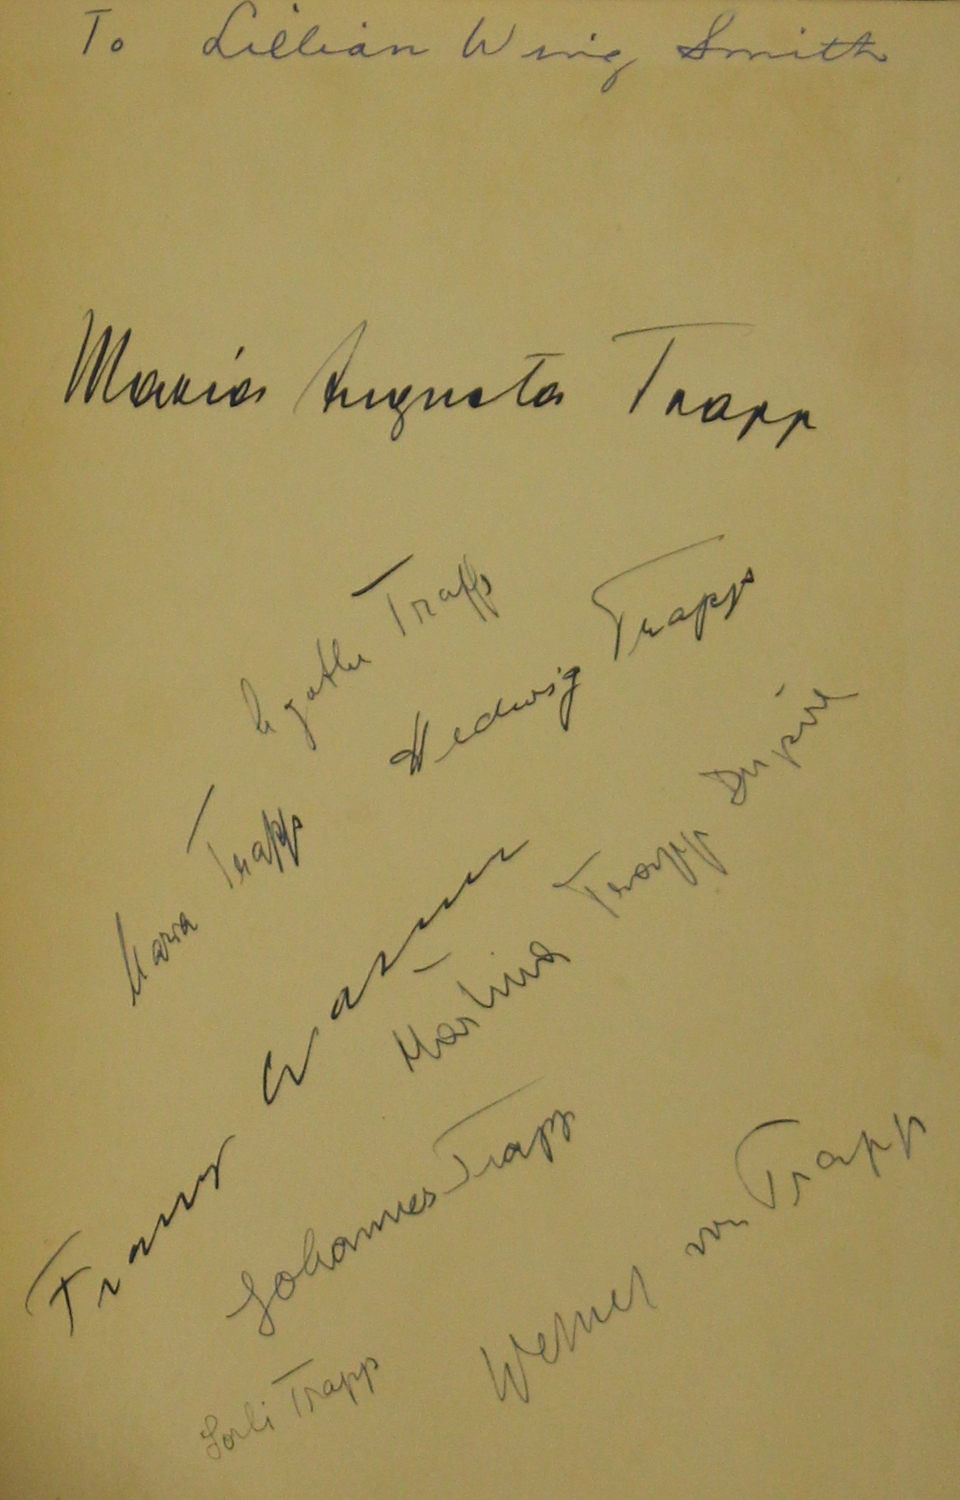 To Lillian Wing Smith
Maria Augusta Trapp
Agathe Trapp
Hedwig Trapp
Maria Trapp
Martina Trapp Dupire
Franz Wasner
Johannes Trapp
Werner von Trapp
Lorli Trapp